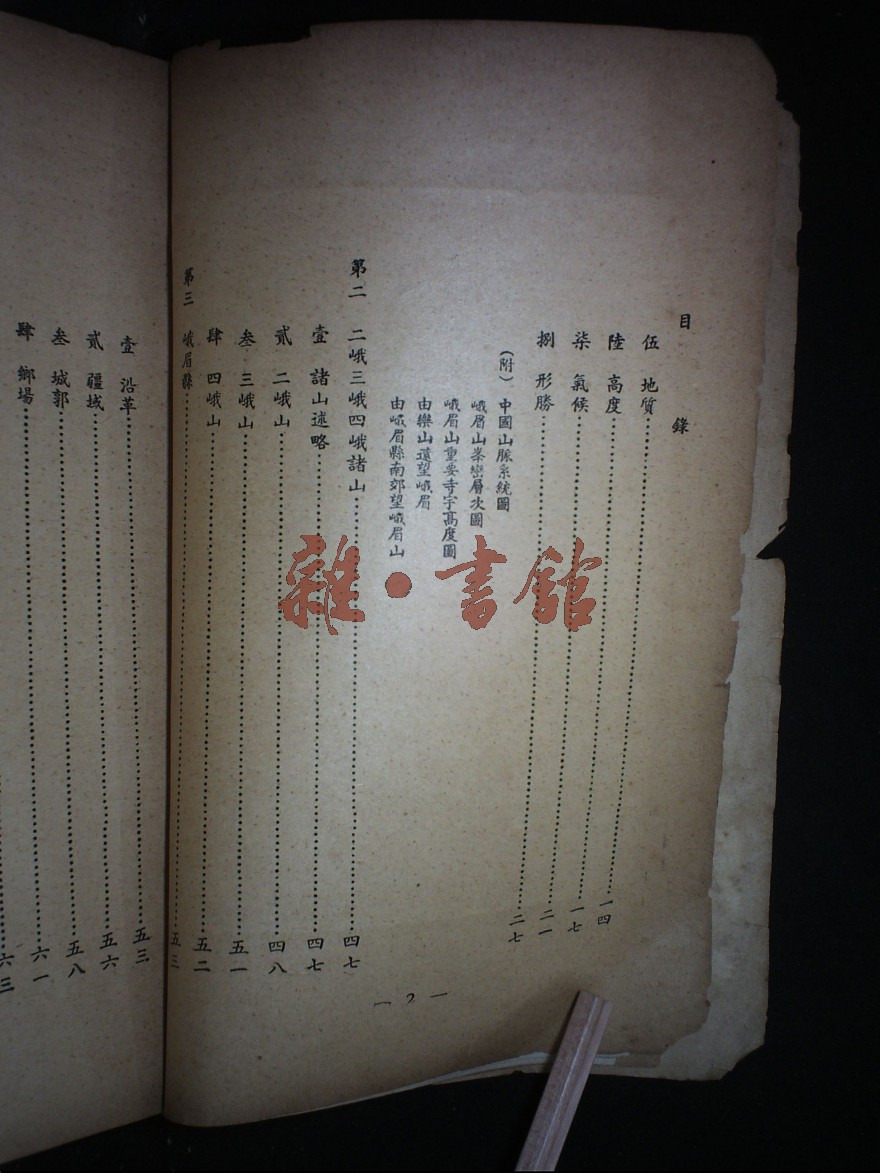 目錄
伍 地質……………一四
陸 高度……………一七
柒 氣候……………二一
捌 形勝……………二七
(附)中國山脈系統圖
峨眉山峯巒層次圖
峨眉山重要寺宇高度圖
由樂山遠望峨眉
由峨眉縣南郊望峨眉山
第二 二峨三峨四峨諸山……………四七
壹 諸山述略……………四七
貳 二峨山……………四八
叁 三峨山……………五一
肆 四峨山……………五二
第三 峨眉縣……………五三
— 2 —
壹 沿革……………五三
貳 疆域……………五六
叁 城郭……………五八
肆 鄉場……………六一
……………六三
雜·書館